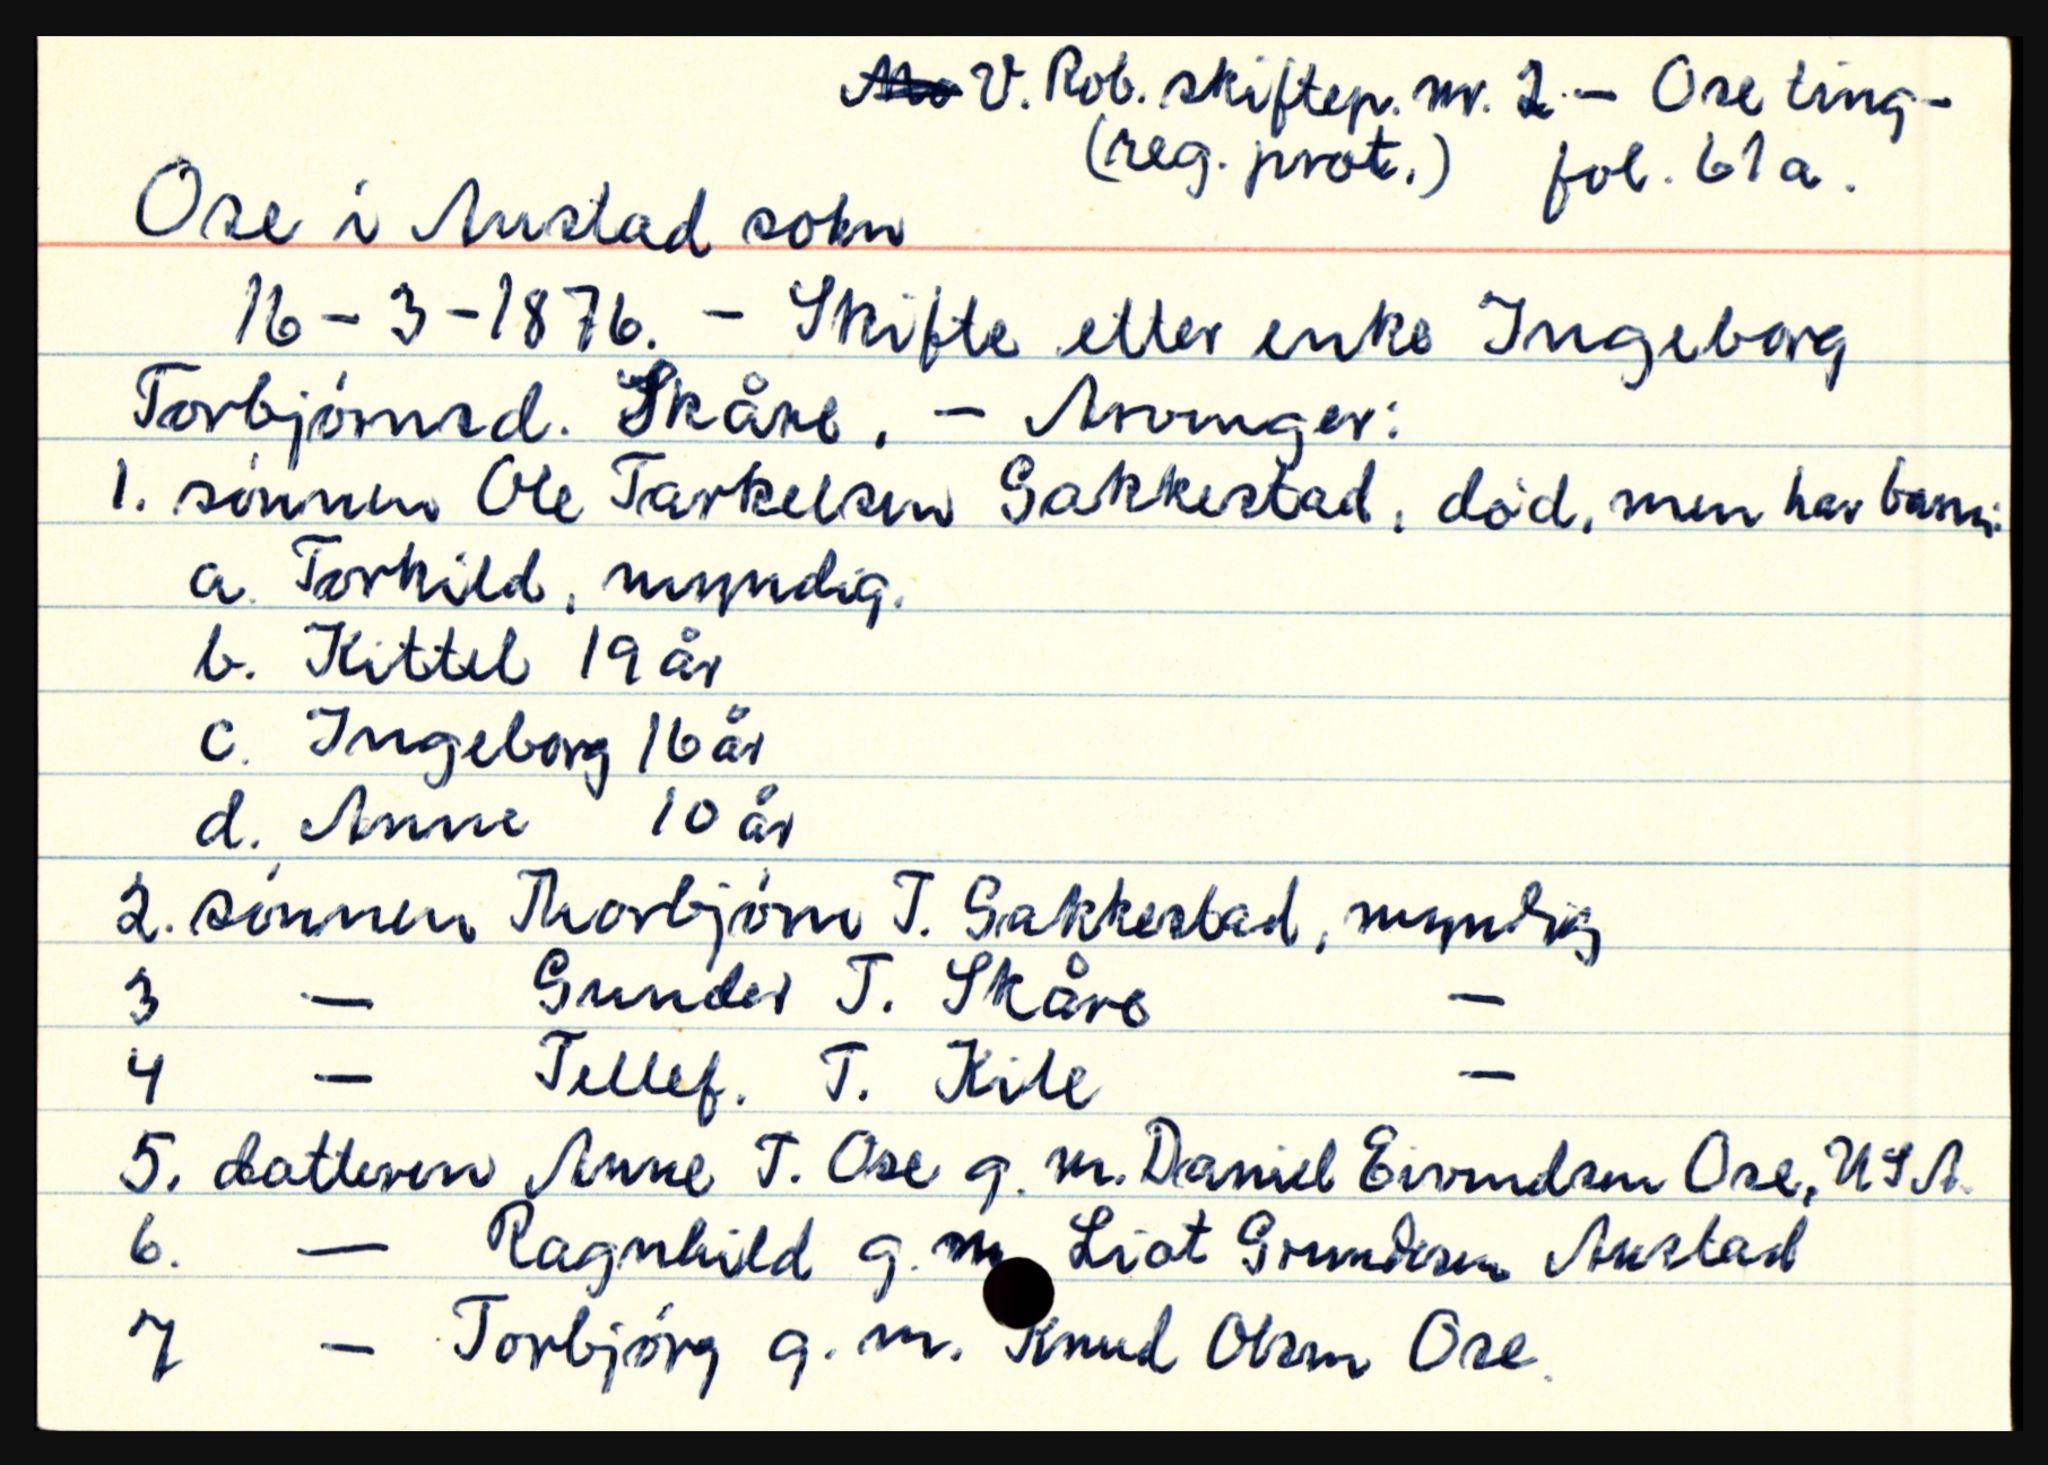 V. Rob. skiftep. nr. 2 - Ose ting-
(reg. prot.) fol. 61a.
Ose i Austad sokn
16-3-1876. - Skifte etter enke Ingeborg
Torbjørnsd. Skåre, - Arvinger:
1. sønnen Ole Tarkelsen Gakkestad, død, men har barn:
a. Torkild, myndig.
b. Kittel 19 år
c. Ingeborg 16 år
d. Anne 10 år
2. sønnen Thorbjørn T. Gakkestad, myndig
3 — Gunder T. Skåre —
4 — Tellef. T. Kile —
5. datteren Anne T. Ose g. m. Daniel Eivindsen Ose, USA.
6. — Ragnhild g. m Liot Gundersen Austad
7 — Torbjørg g. m. Knud Olsen Ose.